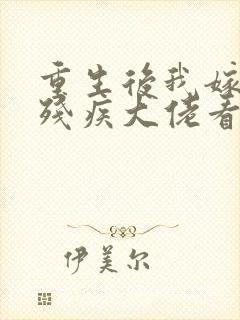 重生後我嫁
殘疾大佬看
伊美尔